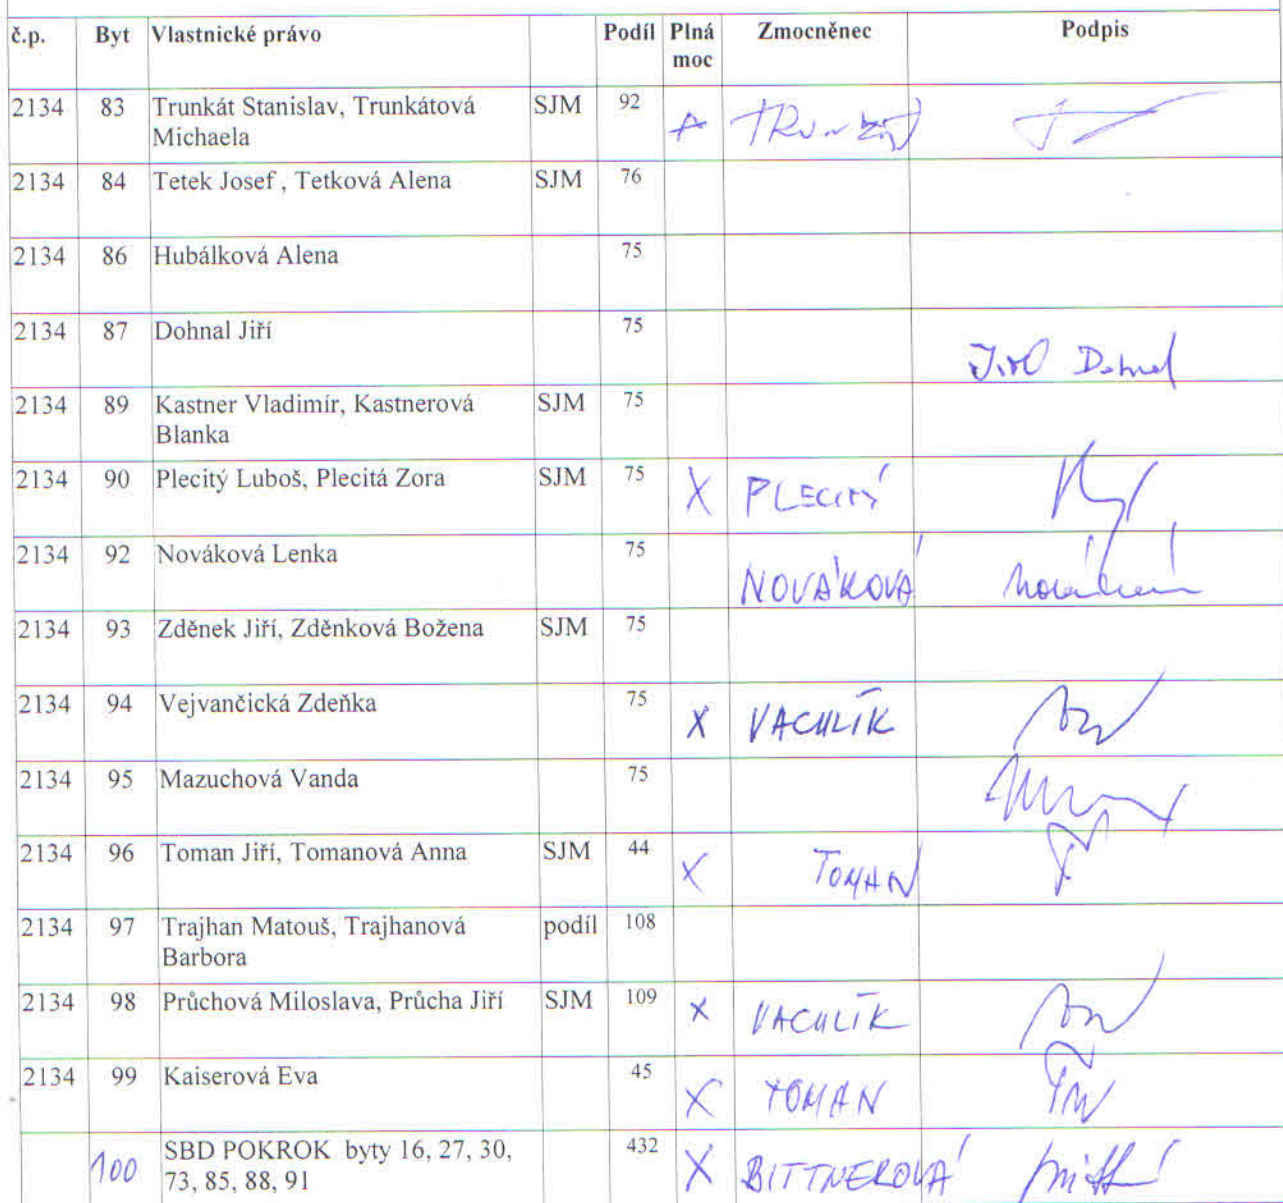 č.p. Byt Vlastnické právo Podíl Plná Zmocněnec Podpis
moc
2134 83 Trunkát Stanislav, Trunkátová SJM 92
Michaela
2134 84 Tetek Josef , Tetková Alena SJM 76
2134 86 Hubálková Alena 75
2134 87 Dohnal Jiří 75
2134 89 Kastner Vladimír, Kastnerová SJM 75
Blanka
2134 90 Plecitý Luboš, Plecitá Zora SJM 75 X PLECITÝ
2134 92 Nováková Lenka 75 NOVÁKOVÁ
2134 93 Zděnek Jiří, Zděnková Božena SJM 75
2134 94 Vejvančická Zdeňka 75 X VACHLÍK
2134 95 Mazuchová Vanda 75
2134 96 Toman Jiří, Tomanová Anna SJM 44 X TOMAN
2134 97 Trajhan Matouš, Trajhanová podíl 108
Barbora
2134 98 Průchová Miloslava, Průcha Jiří SJM 109 X VACHLÍK
2134 99 Kaiserová Eva 45 X TOMAN
100 SBD POKROK byty 16, 27, 30, 432 X BITTNEROVÁ
73, 85, 88, 91